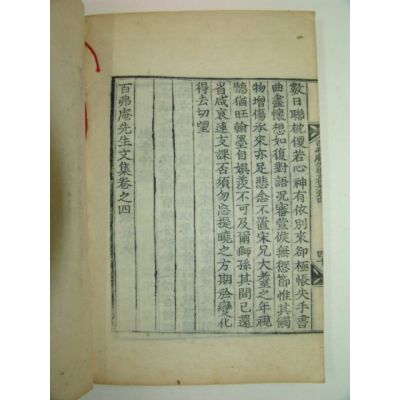 數日聯枕優若心神有依別來卻極悵失手書
曲盡懷想如復對語況審萱候無愆節惟其觸
物增傷承來亦足悲念不置宋兄大耋之年視
聽猶旺翰墨自娛羨不可及爾獅孫其間已還
省咸哀連友課否須勿忘提曉之方期於變化
得去切望
百弗庵先生文集卷之四